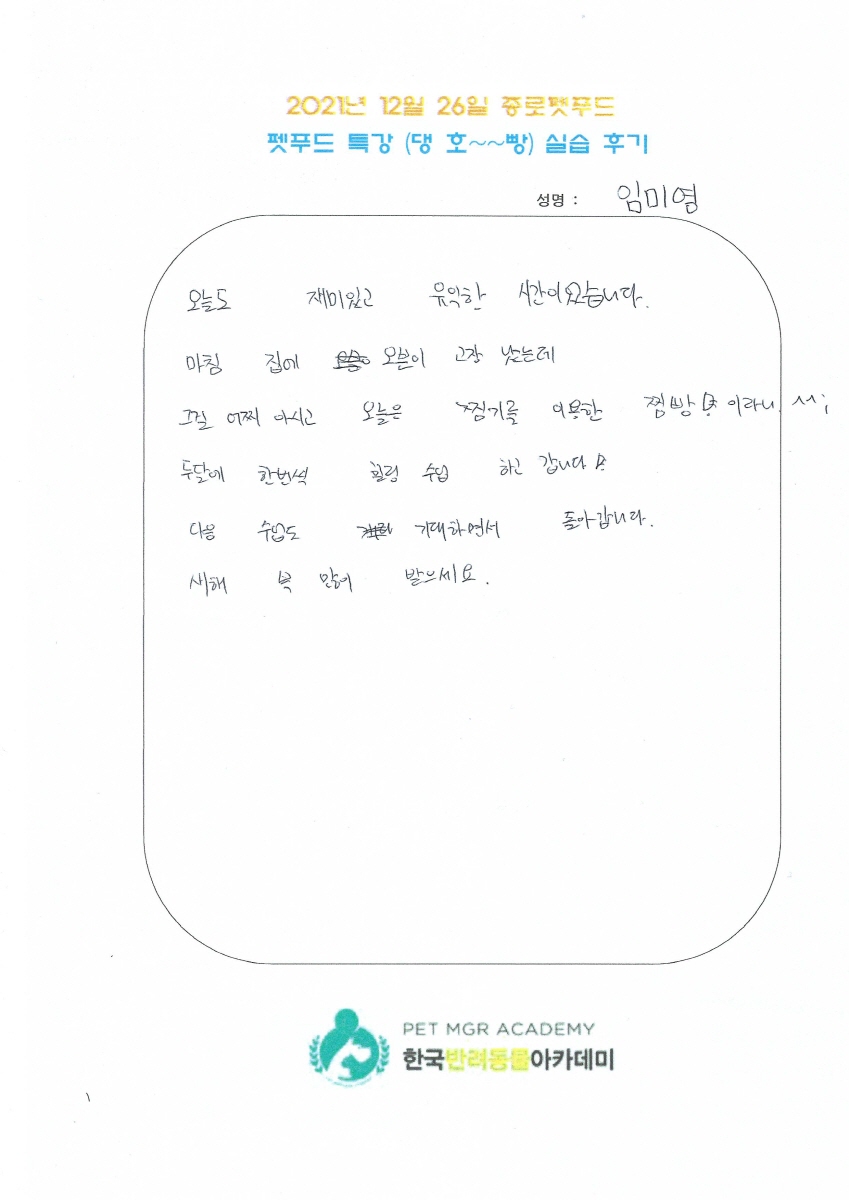 2021년 12월 26일 종로펫푸드
펫푸드 특강 (댕 호~~빵) 실습 후기
성명 : 임미영
오늘도 재미있고 유익한 시간이였습니다.
마침 집에 오븐이 고장 났는데
그걸 어찌 아시고 오늘은 찜기를 이용한 찜빵 이라니
두달에 한번씩 힐링 수업 하고 갑니다
다음 수업도 기대하면서 돌아갑니다.
새해 복 많이 받으세요.
PET MGR ACADEMY
한국반려동물아카데미